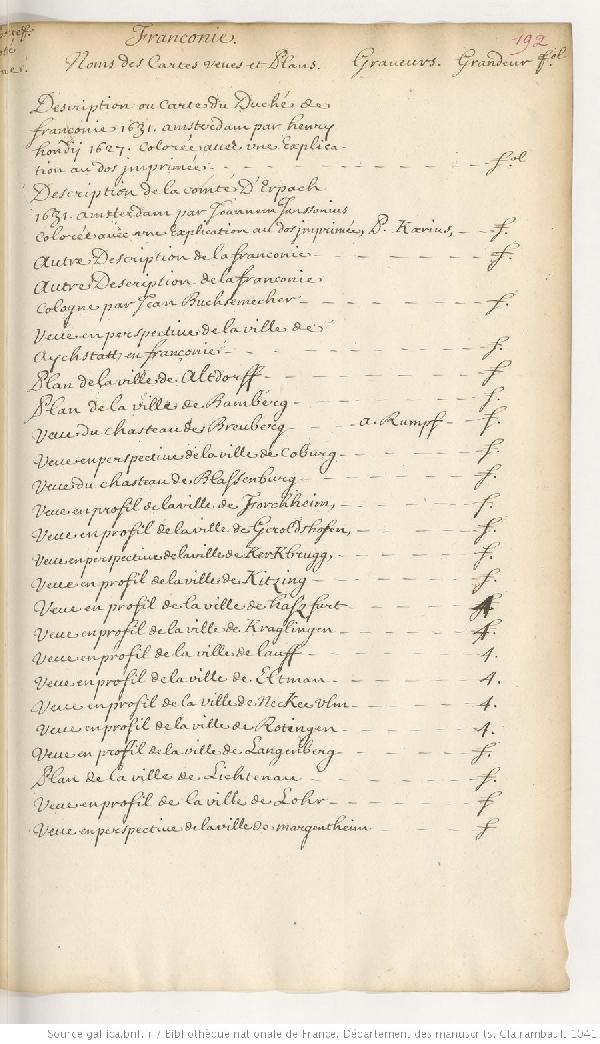 Franconie.
192
Noms des Cartes veues et Plans. Graveurs. Grandeur
fol
Description ou Carte du Duché de
franconie 1631. amsterdam par henry
hondij 1627. Colorée avec vne Explica-
tion au dos jmprimée - fol
Description de la comté D'Erpach
1631. amsterdam par Joannem Janssonius
Colorée avec vne Explication au dos jmprimée, P. Kærius, - f.
Autre Description de la franconie - f.
Autre Description de la franconie
Cologne par Jean Buchsemecher - f.
Veue en perspective de la ville de
Aychstatt en franconie - f.
Plan de la ville de Altdorff - f
Plan de la ville de Bamberg - f.
Veue du chasteau de Breuberg - a. Rumpf - f.
Veue en perspective de la ville de Coburg - f.
Veue du chasteau de Blassenburg - f.
Veue en profil de la ville de Forchheim, - f.
Veue en profil de la ville de Geroldshofen, - f.
Veue en perspective de la ville de KerKbrugg, - f.
Veue en profil de la ville de Kitzing - f.
Veue en profil de la ville de haszfurt - 4
Veue en profil de la ville de Kraglingen - 4.
Veue en profil de la ville de lauff - 4.
Veue en profil de la ville de Eltman - 4.
Veue en profil de la ville de Neckee vlm - 4.
Veue en profil de la ville de Rotingen - 4.
Veue en profil de la ville de Langenberg - f.
Plan de la ville de Lichtenau - f.
Veue en profil de la ville de Lohr - f
Veue en perspective de la ville de margentheim - f
Source gallica.bnf.fr / Bibliothèque nationale de France. Département des manuscrits. Clairambault 1041